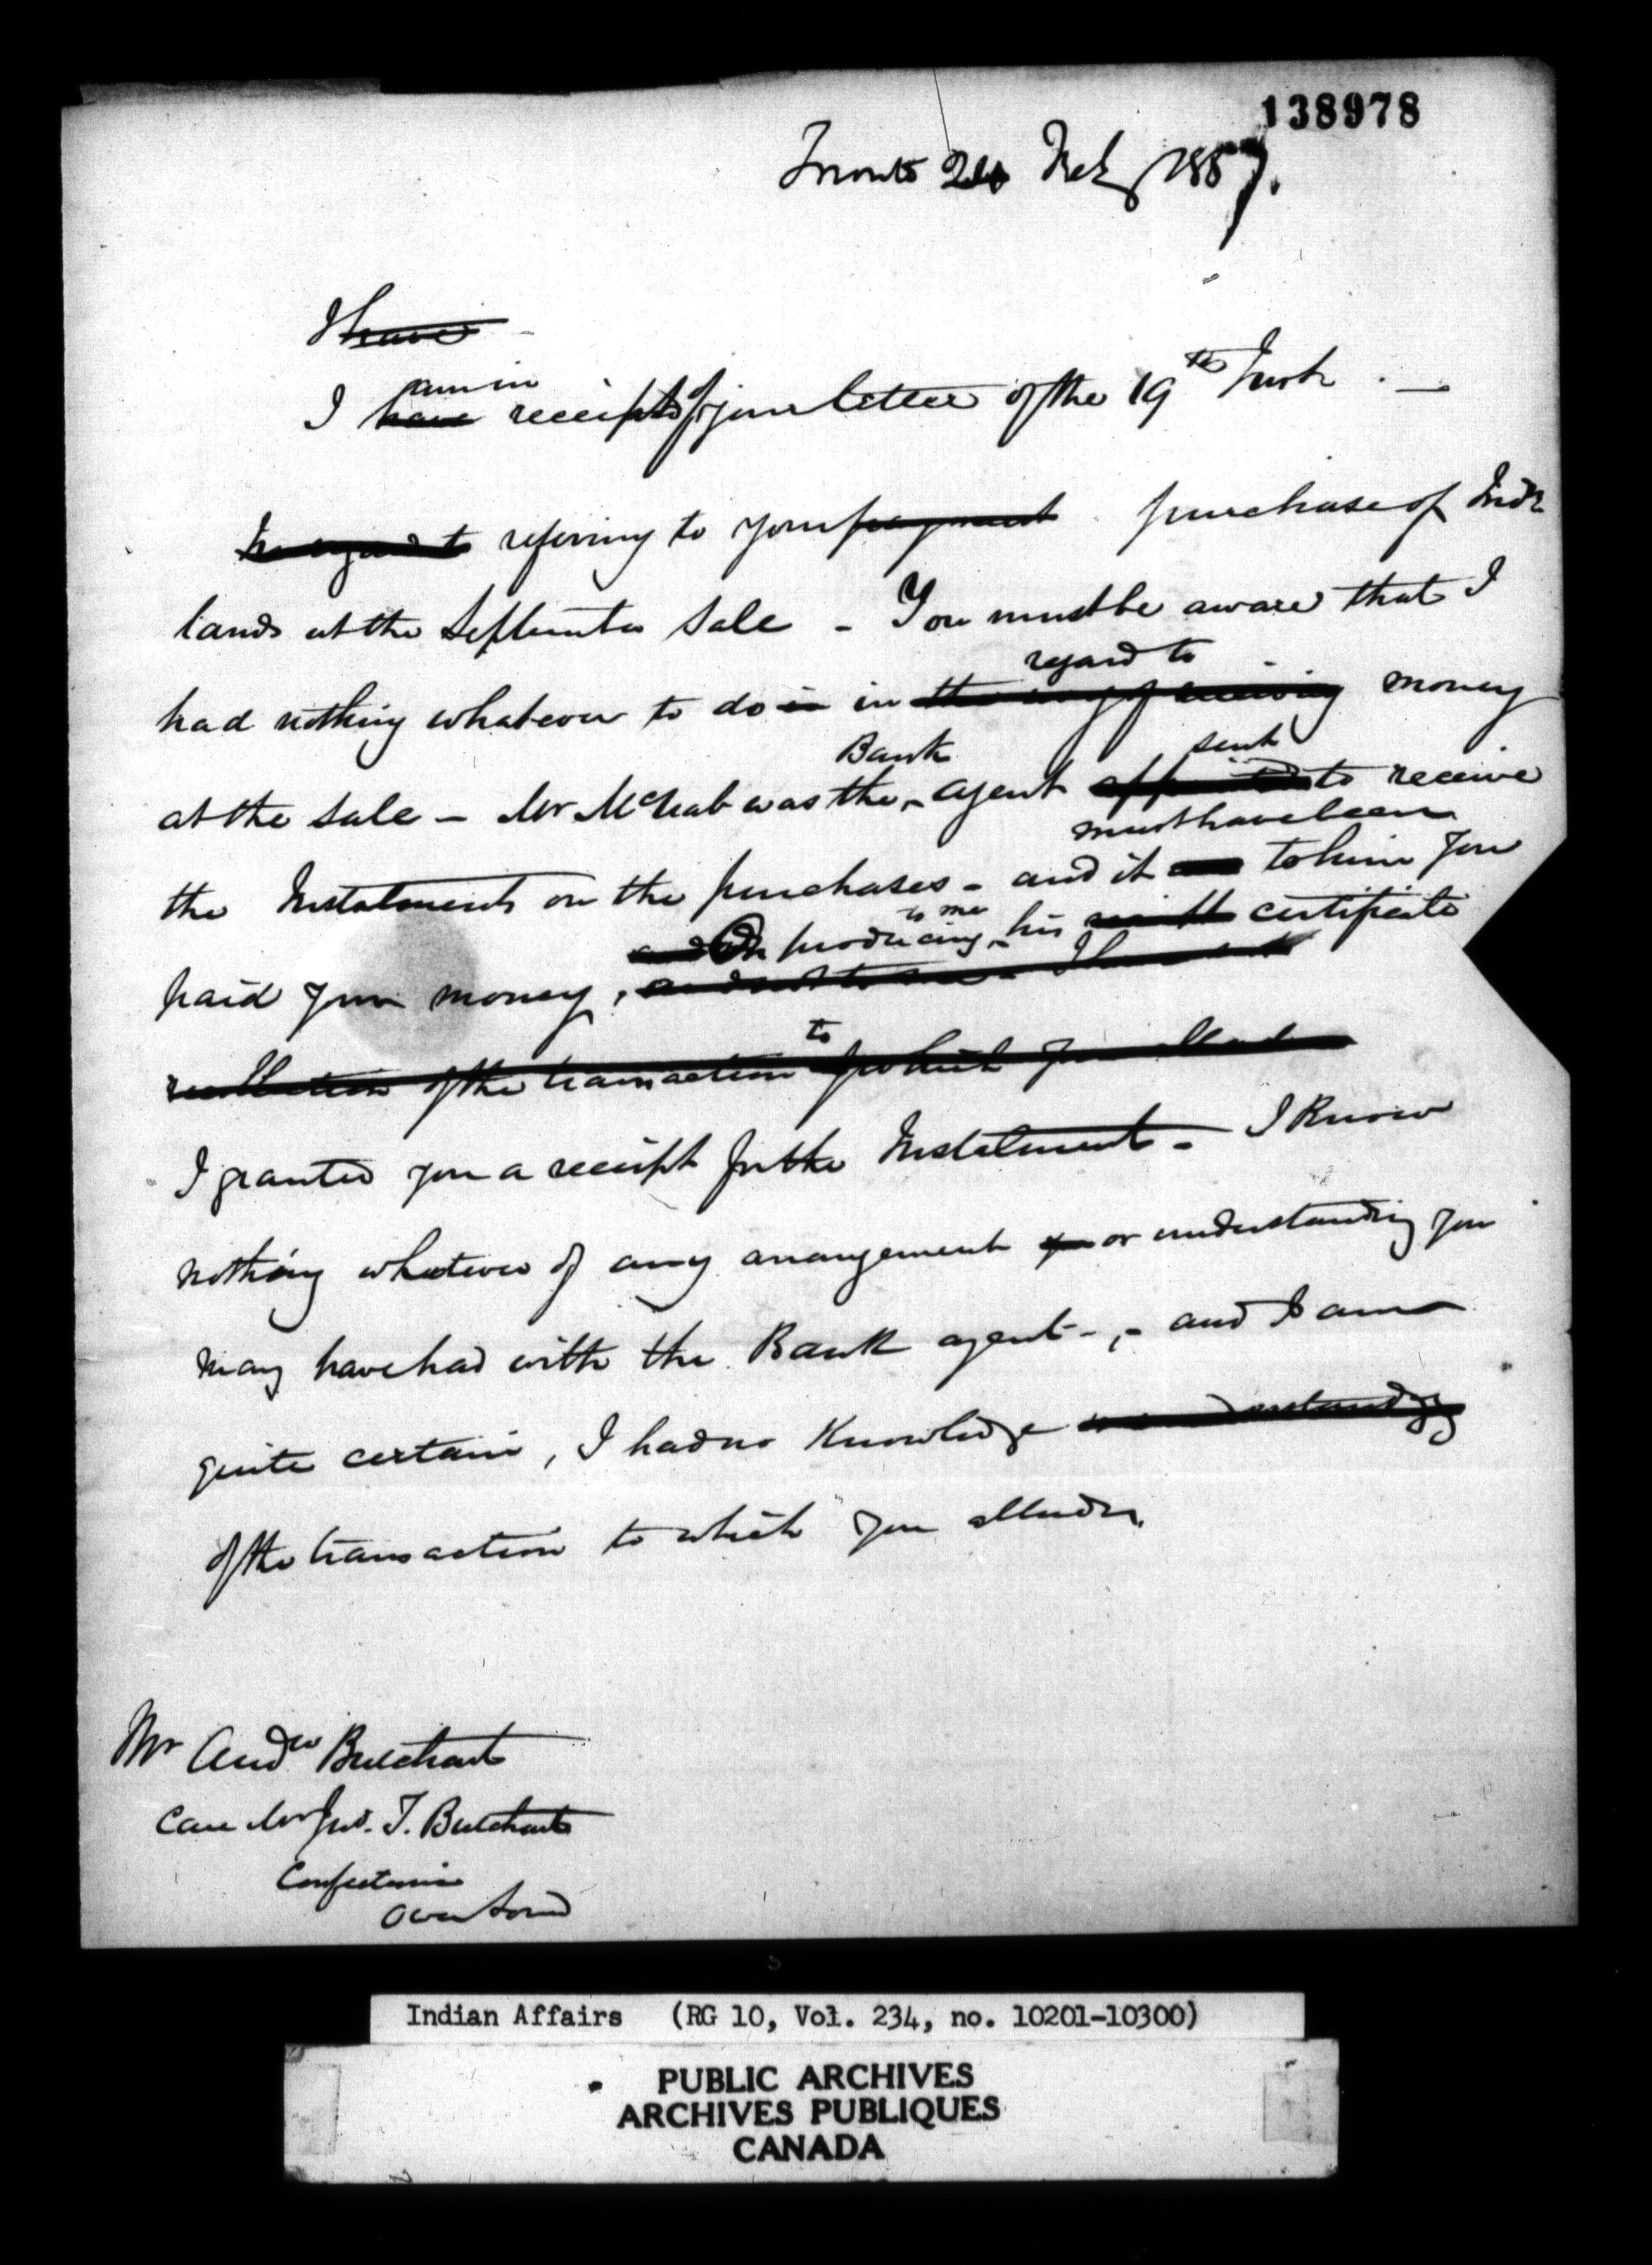 138978
Toronto 24 Feby 1857.
I have
am in
I have receipt of your letter of the 19th Inst. —
In regard to referring to your payment purchase of Indn
lands at the September Sale - You must be aware that I
regard to
had nothing whatever to do in in the way of receiving money
Bank sent
at the sale - Mr McNab was the agent appointed to receive
must have been
the Instalments on the purchases - and it was to him you
and On producing to me his certificate
paid your money, and not to me - I have no
recollection of the transaction to which you allude
I granted you a receipt for the Instalment - I know
nothing whatever of any arrangement or understanding you
may have had with the Bank agent -, - and I am
quite certain, I had no Knowledge or understanding
of the transaction to which you allude.
Mr Andw Butchart
Care Mr Jno. T. Butchart
Confectioner
Owen Sound
Indian Affairs (RG 10, Vol. 234, no. 10201-10300)
PUBLIC ARCHIVES
ARCHIVES PUBLIQUES
CANADA